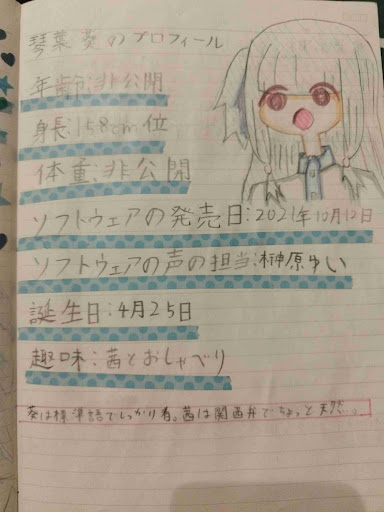 琴葉葵のプロフィール
年齢:非公開
身長:158cm位
体重:非公開
ソフトウェアの発売日:2021年10月12日
ソフトウェアの声の担当:榊原ゆい
誕生日:4月25日
趣味:茜とおしゃべり
葵は標準語でしっかり者。茜は関西弁でちょっと天然…。